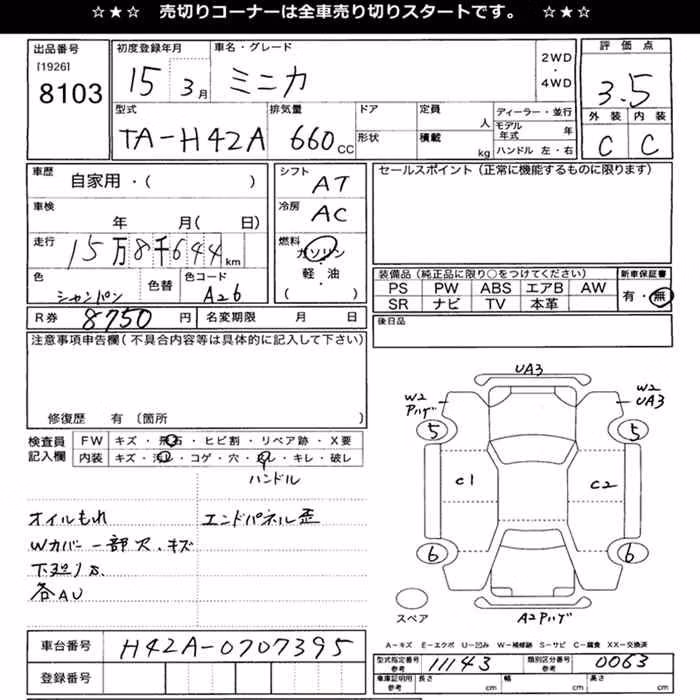 ☆★☆ 売切りコーナーは全車売り切りスタートです。 ☆★☆
出品番号
[1926]
8103
初度登録年月
15 3月
車名・グレード
ミニカ
2WD
・
4WD
評価点
3.5
外装 内装
C C
型式
TA-H42A
排気量
660cc
ドア
形状
定員
人
積載
kg
ディーラー・並行
モデル年式 年
ハンドル 左・右
車歴
自家用・( )
車検
年 月( 日)
走行
15万8千644km
色
シャンパン
色替
色コード
A26
シフト
AT
冷房
AC
燃料
ガソリン
・
軽・油
( )
セールスポイント(正常に機能するものに限ります)
装備品(純正品に限り○をつけてください)
PS PW ABS エアB AW
SR ナビ TV 本革
新車保証書
有・無
R券 8750円
名変期限 月 日
後日品
注意事項申告欄(不具合内容等は具体的に記入して下さい)
修復歴 有〔箇所 〕
検査員
記入欄
FW キズ・飛石・ヒビ割・リペア跡・X要
内装 キズ・汚れ・コゲ・穴・スレ・キレ・破レ
ハンドル
オイルもれ
エンドパネル歪
Wカバー一部欠、キズ
各AU
UA3
W2
Pハゲ
W2
UA3
5
5
C1
C2
6
6
スペア
A2Pハゲ
A-キズ E-エクボ U-凹み W-補修跡 S-サビ C-腐食 XX-交換済
車台番号 H42A-0707395
登録番号
型式指定番号
参考
11143
類別区分番号
参考
0063
車庫証明用
参考
長さ cm
幅 cm
高さ cm